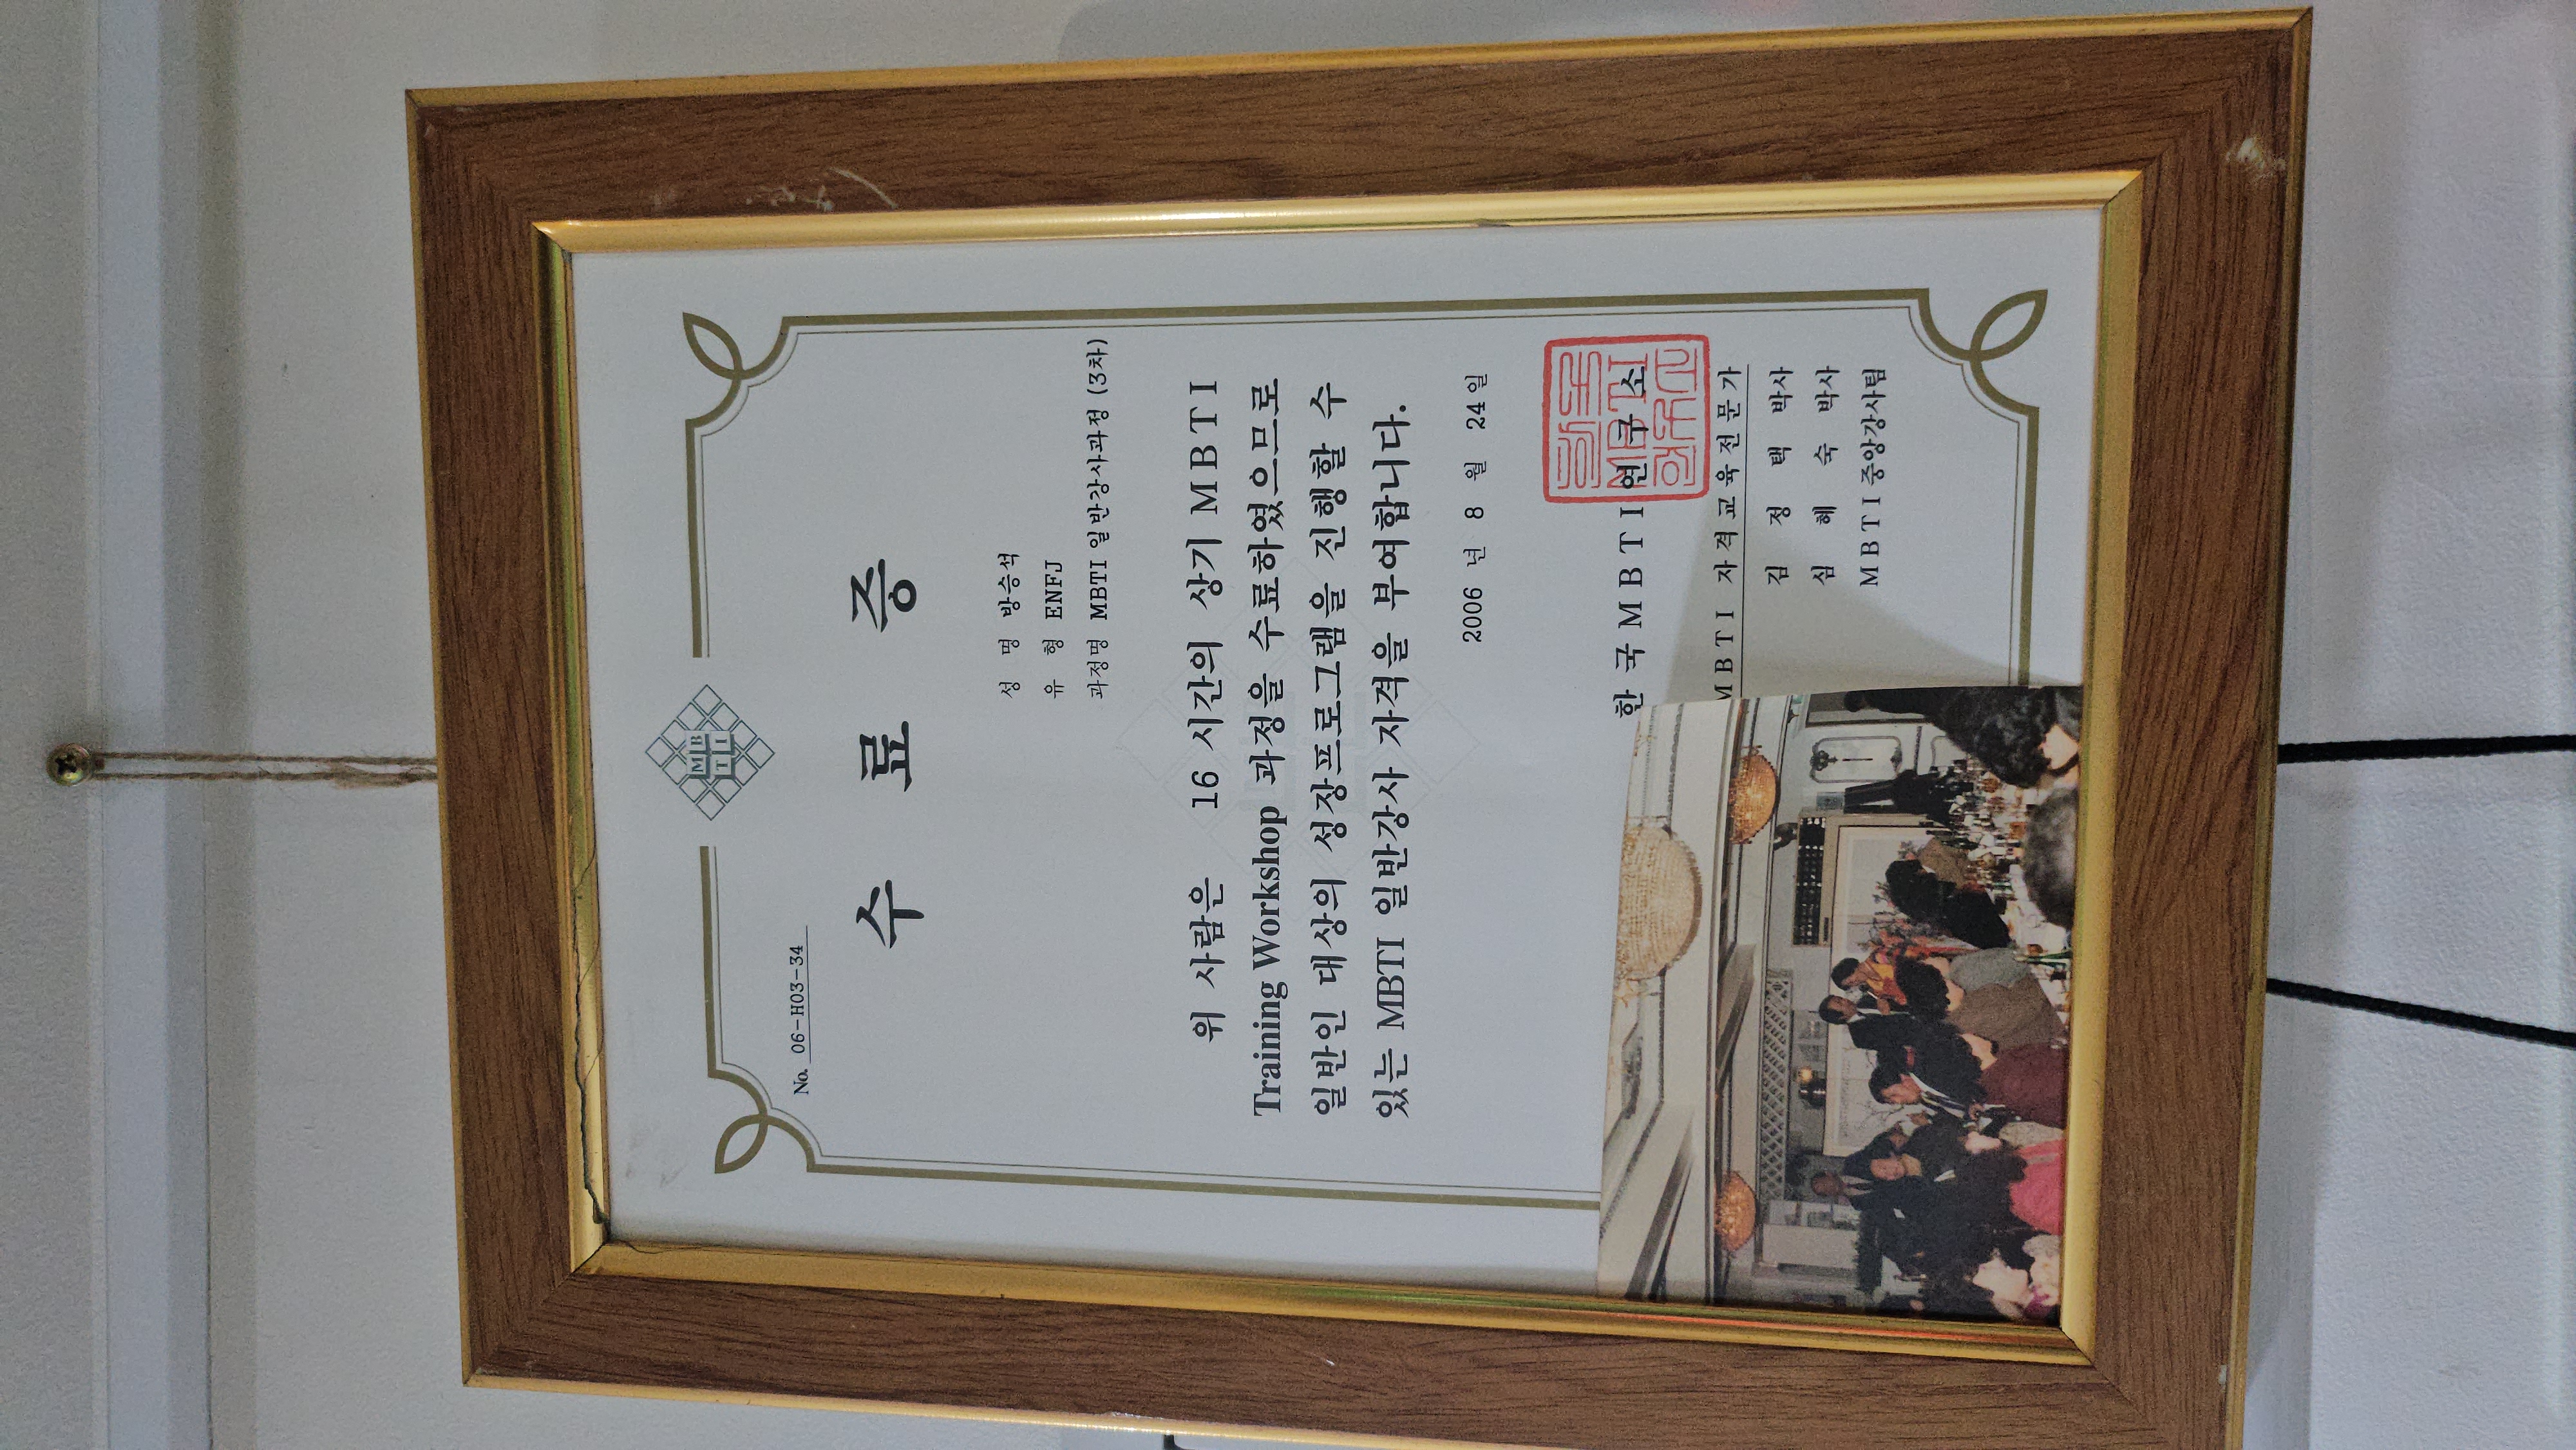 MB
TI
No. 06-H03-34
수 료 증
성 명 방승석
유 형 ENFJ
과정명 MBTI 일반강사과정 (3차)
위 사람은 16 시간의 상기 MBTI
Training Workshop 과정을 수료하였으므로
일반인 대상의 성장프로그램을 진행할 수
있는 MBTI 일반강사 자격을 부여합니다.
2006 년 8 월 24 일
한국MBTI연구소
MBTI 자격교육전문가
김 정 택 박사
심 혜 숙 박사
MBTI중앙강사팀